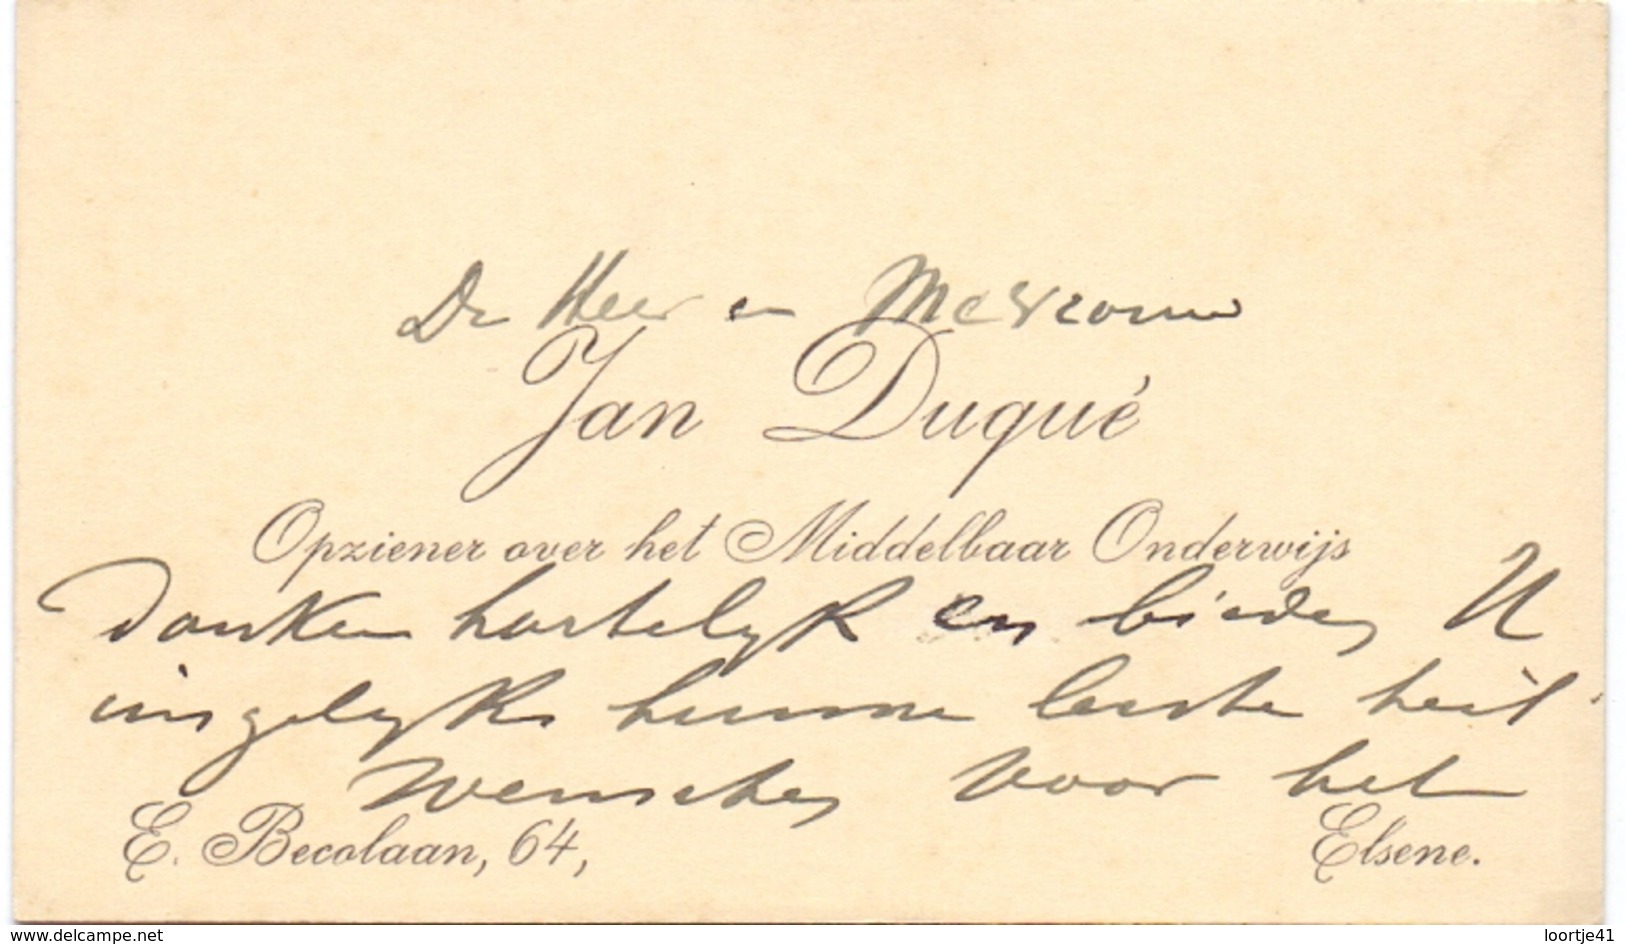 De Heer en Mevrouw
Jan Duqué
Opziener over het Middelbaar Onderwijs
danken hartelijk en bieden U
insgelijks hunne beste heil
wenschen voor het
E. Becolaan, 64,
Elsene.
www.delcampe.net
loortje41